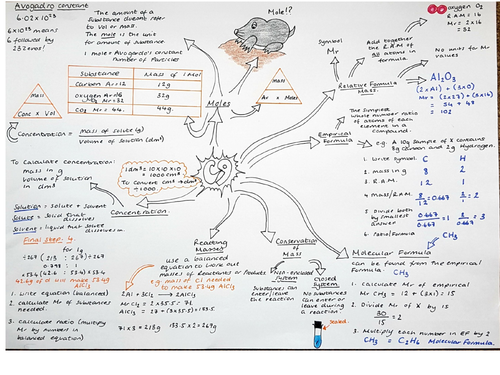 Avogadro constant
6.02 x 10²³
6 x 10²³ means
6 followed by
23 zeros!
The amount of a
Substance doesn't refer
to Vol or mass.
The mole is the unit
for amount of Substance
1 mole = Avogadro's constant
number of Particles
Mole!?
Substance Mass of 1 Mol
Carbon Ar=12 12g
Oxygen Ar=16
Mr=32 32g
CO₂ Mr=44. 44g.
Moles
mass
Ar x Moles
mass
Conc x Vol
Concentration = Mass of Solute (g)
Volume of Solution (dm³)
To Calculate concentration:
mass in g
Volume of Solution
in dm³
1dm³ = 10x10x10
= 1000cm³
To Convert
÷1000.
Solution = Solute + Solvent
Solute = Solid that
dissolves
Solvent: liquid that
Concentration.
Final Step 4.
1. Write equation (balanced)
2. Calculate Mr of Substance
needed.
3. Calculate ratio (multiply
Mr by numbers in
balanced equation)
Reacting
Masses
use a balanced
equation to work out
Masses of Reactants or Products
e.g mass of Cl needed to
make 53.4g AlCl₃
2Al + 3Cl₂ → 2AlCl₃
Mr Cl₂ = 2 x 35.5 = 71
AlCl₃ = 27 + (3x35.5) = 133.5
71 x 3 = 213g 133.5 x 2 = 267g
Conservation
of Mass
Non-enclosed
System
Substances can
enter/leave
the reaction
Closed
System
No substances
can enter or
leave during
a reaction
Sealed.
C6
Symbol
Mr
Add together
the R.A.M
of all atoms in the
formula
Oxygen O₂
R.A.M = 16
Mr = 2x16
= 32
No units for Mr
values
Relative Formula
Mass.
Al₂O₃
(2 x Al) + (3 x O)
Mr = (2x27) + (3x16)
= 54 + 48
= 102
Empirical
Formula
The Simplest
whole number ratio
of atoms of each
element in a
compound.
e.g. A 10g Sample of X contains
8g Carbon and 2g Hydrogen.
1. Write Symbol C H
2. mass in g 8 2
3. R.A.M. 12 1
4. Mass/R.A.M 8/12 = 0.667 2/1 = 2
5. Divide both
by Smallest
answer 0.667/0.667 = 1 2/0.667 = 3
6. ratio/Formula CH₃
Molecular Formula
can be found from the Empirical
Formula CH₃
1. Calculate Mr of Empirical
Mr CH₃ = 12 + (3x1) = 15
2. Divide Mr of X by 15
30/15 = 2
3. Multiply each number in EF by 2
CH₃ = C₂H₆ Molecular Formula.